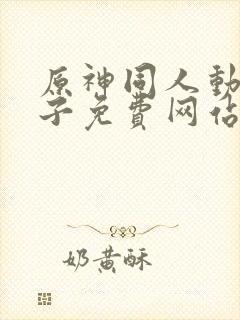 原神同人動
子免費网站
奶黄酥